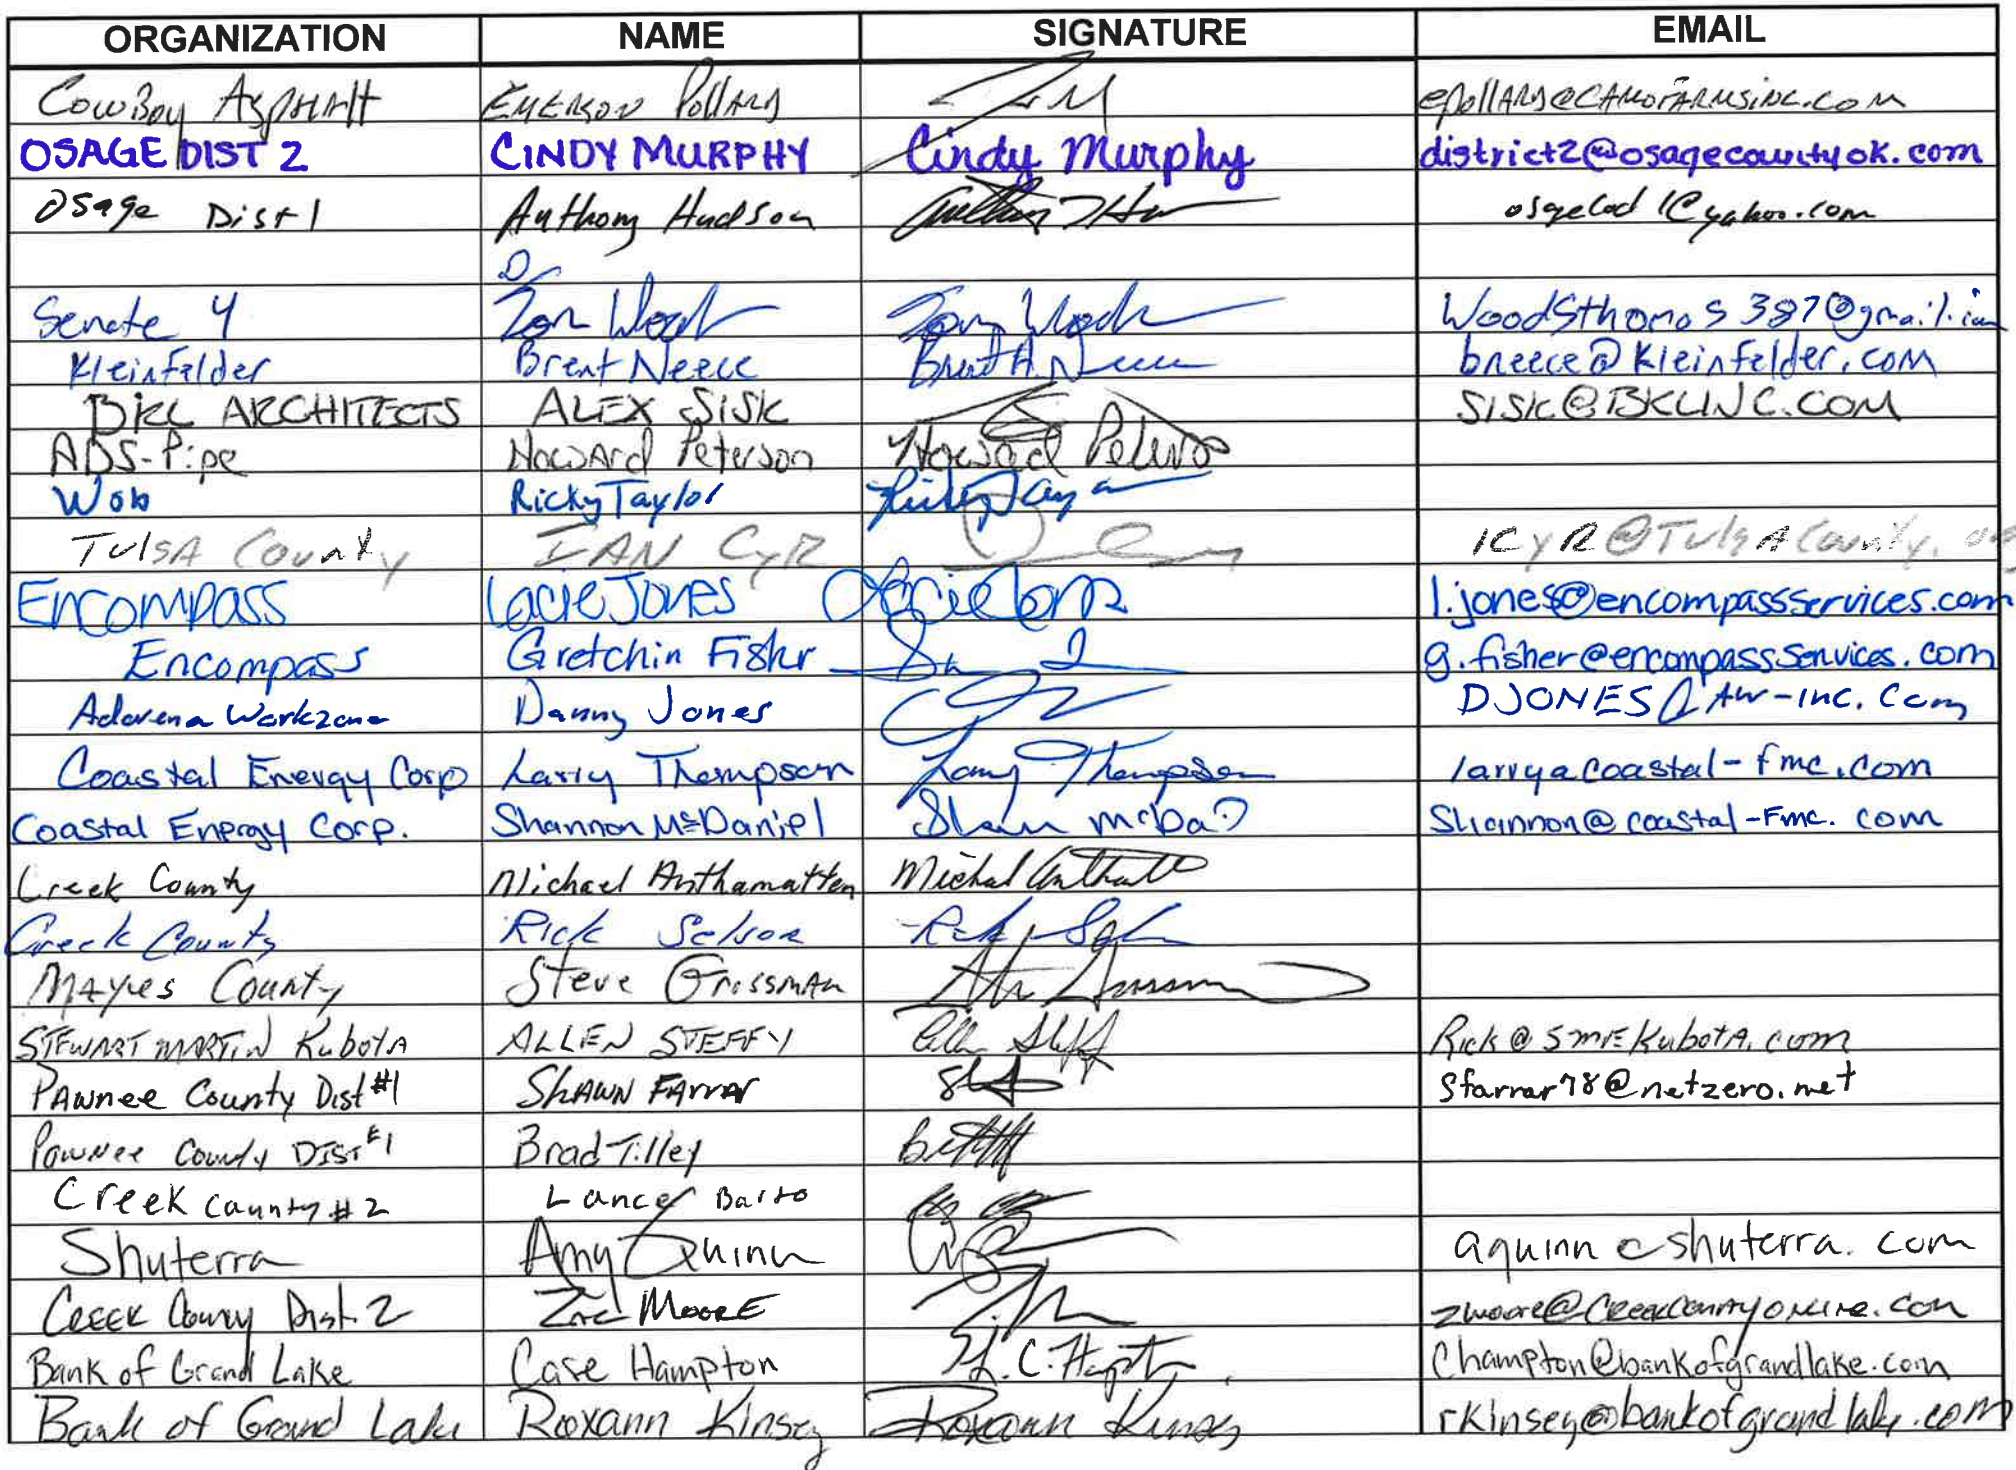 ORGANIZATION NAME SIGNATURE EMAIL
CowBoy Asphalt Emerson Pollard epollard@camofarmsinc.com
OSAGE DIST 2 CINDY MURPHY Cindy Murphy district2@osagecountyok.com
Osage Dist 1 Anthony Hudson
Senate 4 Tom Woods Tom Woods Woodsthomas387@gmail.com
Kleinfelder Brent Neece Brent A. Neece bneece@kleinfelder.com
BKL ARCHITECTS ALEX SISK SISK@BKLINC.COM
ADS-Pipe Howard Peterson Howard Peterson
Wob Ricky Taylor Ricky Taylor
TulsA County IAN CyR ICyR@TulsACounty.org
Encompass Lacie Jones Lacie Jones l.jones@encompassservices.com
Encompass Gretchin Fisher g.fisher@encompassservices.com
Workzone Danny Jones DJONES@AW-INC.Com
Coastal Energy Corp Larry Thompson Larry Thompson larry@coastal-fmc.com
Coastal Energy Corp. Shannon McDaniel Shannon@coastal-Fmc.com
Creek County Michael Anthamatten
Creek County Rick
Mayes County Steve Grossman
STEWART MARTIN KubotA ALLEN STEFFY Rick@smeKubotA.com
PAwnee County Dist #1 SHAWN FArrar Sfarrar78@netzero.net
Pawnee County DIST #1 Brad Tilley
Creek County #2 Lance
Shuterra Amy Quinn aquinn@shuterra.com
Creek County Dist. 2 Zac MooRE zmoore@creekcountyonline.com
Bank of Grand Lake Case Hampton Champton@bankofgrandlake.com
Bank of Grand Lake Roxann Kinsey Roxann Kinsey rkinsey@bankofgrandlake.com